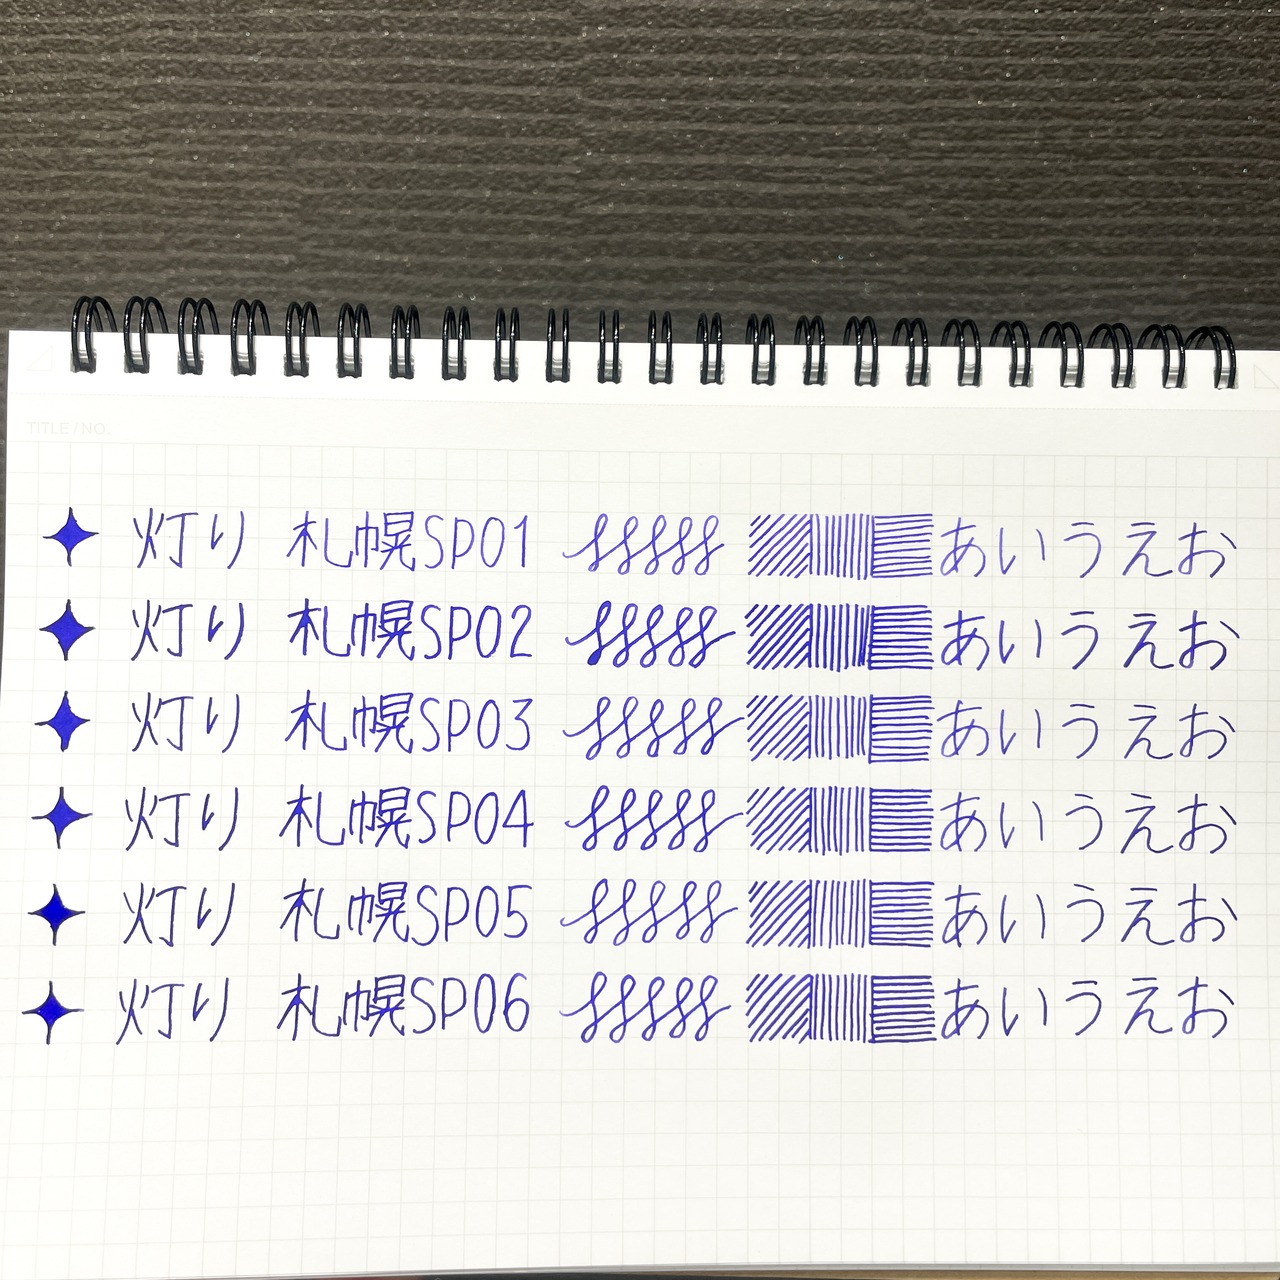 TITLE / NO.
灯り 札幌SP01 あいうえお
灯り 札幌SP02 あいうえお
灯り 札幌SP03 あいうえお
灯り 札幌SP04 あいうえお
灯り 札幌SP05 あいうえお
灯り 札幌SP06 あいうえお